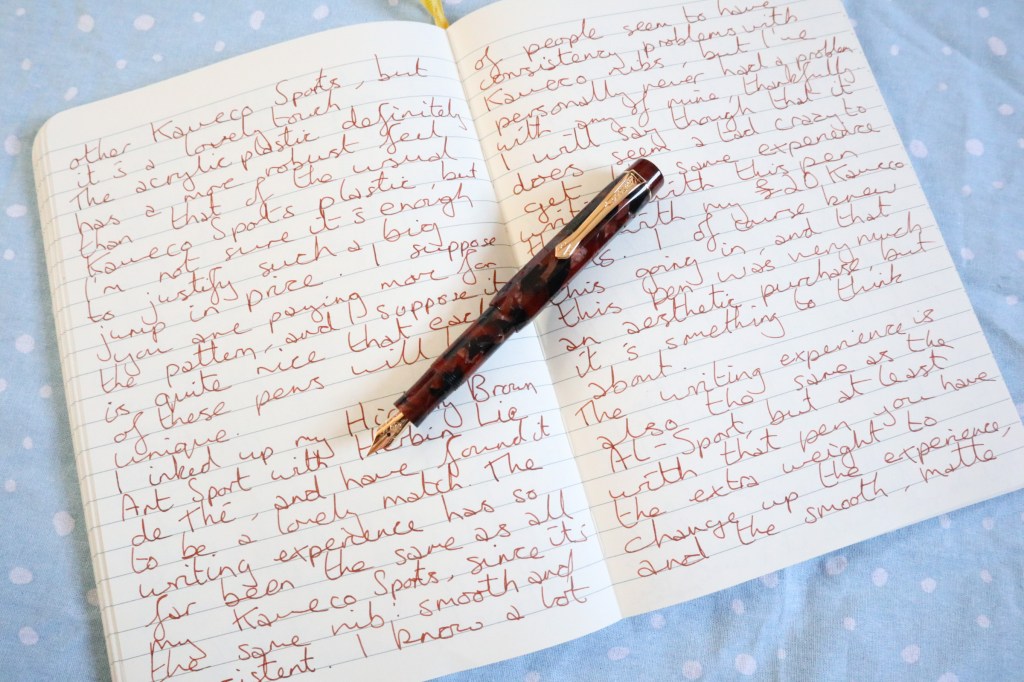 other Kaweco Sports, but
it's a lovely touch.
The acrylic plastic definitely
has a more robust feel
than that of the usual
Kaweco Sports plastic, but
I'm not sure it's enough
to justify such a big
jump in price. I suppose
you are paying more for
the pattern, and I suppose it
is quite nice that each
of these pens will
unique.
I inked up my Brown
Art Sport with Herbin Lie
de Thé, and have found it
to be a lovely match. The
writing experience has so
far been the same as all
my Kaweco Sports, since it's
the same nib: smooth and
sistent. I know a lot
of people seem to have
consistency problems with
Kaweco nibs, but I've
personally never had a problem
with any of mine thankfully.
I will say though that it
does seem a tad crazy to
get same experience
with this pen
with my £20 Kaweco
I of course knew
this going in, and that
this pen was very much
an aesthetic purchase, but
it's something to think
about.
The writing experience is
also the same as the
AL-Sport, but at least
with that pen you have
the extra weight to
change up the experience,
and the smooth, matte